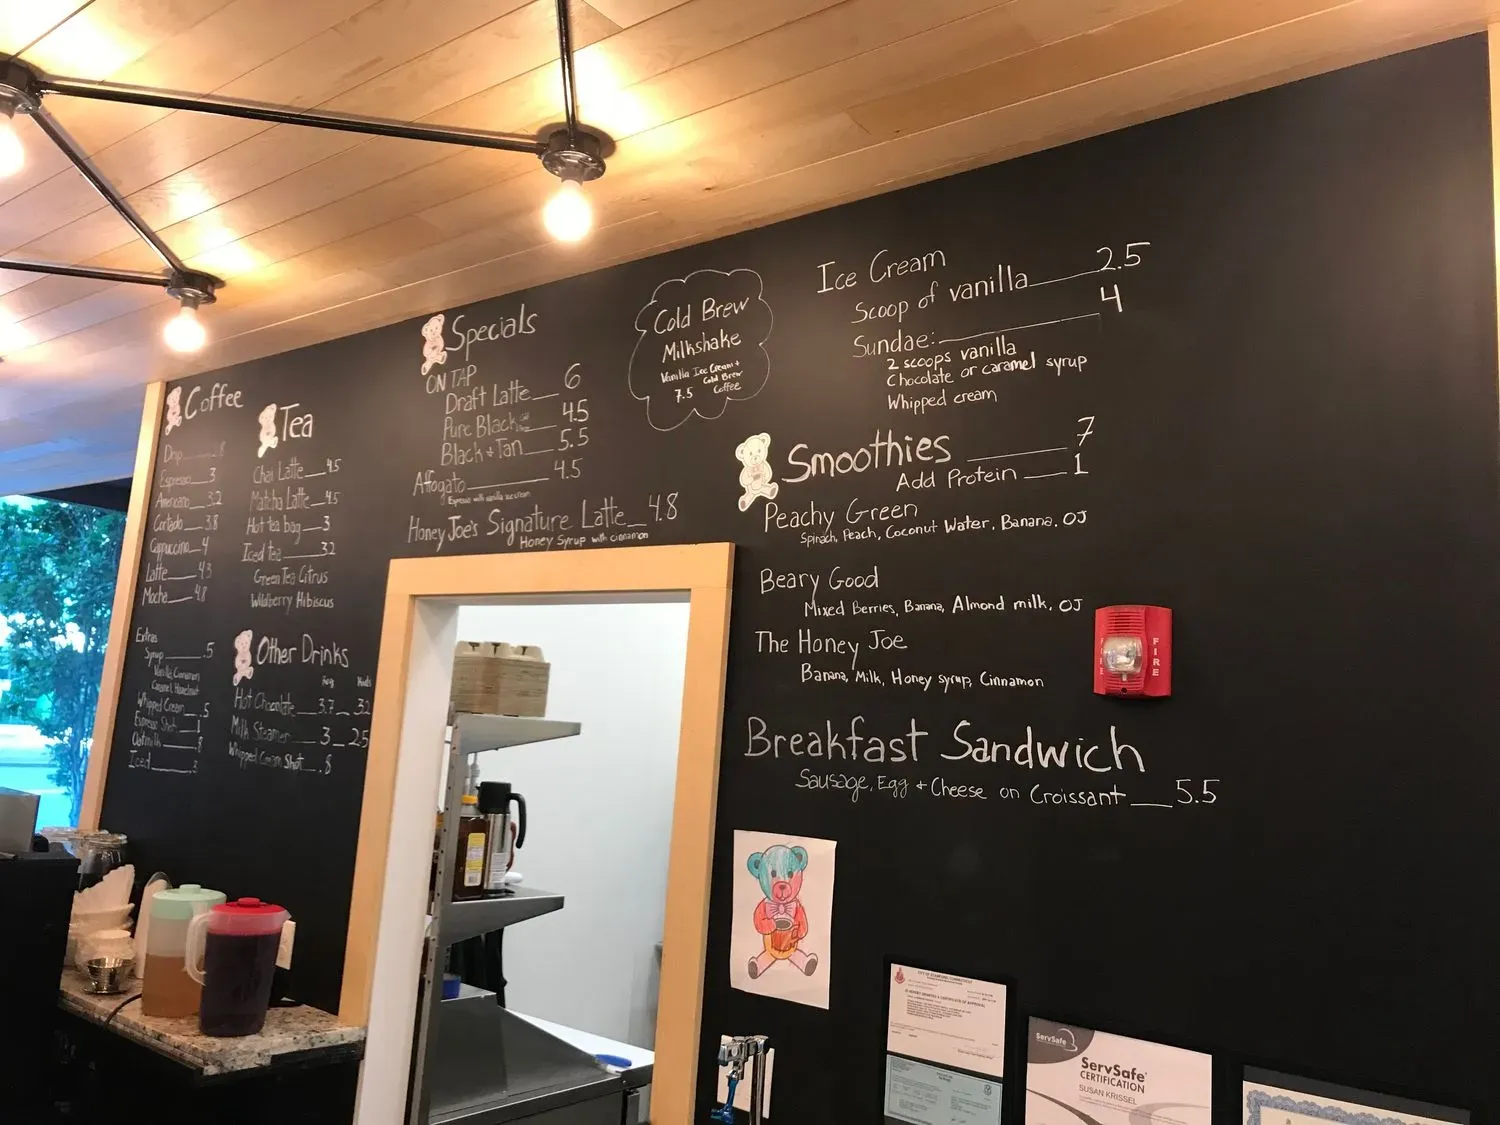 Coffee
Drip
Espresso 3
Americano 3.2
Cortado 3.8
Cappuccino 4
Latte 4.3
Mocha 4.8
Extras
Syrup .5
Vanilla, Cinnamon
Caramel, Hazelnut
Whipped Cream .5
Espresso Shot 1
Oatmilk .8
Iced
Tea
Chai Latte 4.5
Matcha Latte 4.5
Hot tea bag 3
Iced tea 3.2
Green Tea Citrus
Wildberry Hibiscus
Other Drinks
Reg Kids
Hot Chocolate 3.7 3.2
Milk Steamer 3 2.5
Whipped Cream Shot .8
Specials
ON TAP
Draft Latte 6
Pure Black 4.5
Black + Tan 5.5
Affogato 4.5
Espresso with vanilla ice cream
Honey Joe's Signature Latte 4.8
Honey Syrup with cinnamon
Cold Brew
Milkshake
Vanilla Ice Cream +
Cold Brew
Coffee
7.5
Ice Cream
Scoop of vanilla 2.5
Sundae: 4
2 scoops vanilla
Chocolate or caramel syrup
Whipped cream
Smoothies 7
Add Protein 1
Peachy Green
Spinach, Peach, Coconut Water, Banana, OJ
Beary Good
Mixed Berries, Banana, Almond milk, OJ
The Honey Joe
Banana, Milk, Honey syrup, Cinnamon
Breakfast Sandwich
Sausage, Egg + Cheese on Croissant 5.5
FIRE
CITY OF STAMFORD, CONNECTICUT
CERTIFICATE OF APPROVAL
ServSafe
ServSafe
CERTIFICATION
SUSAN KRISSEL